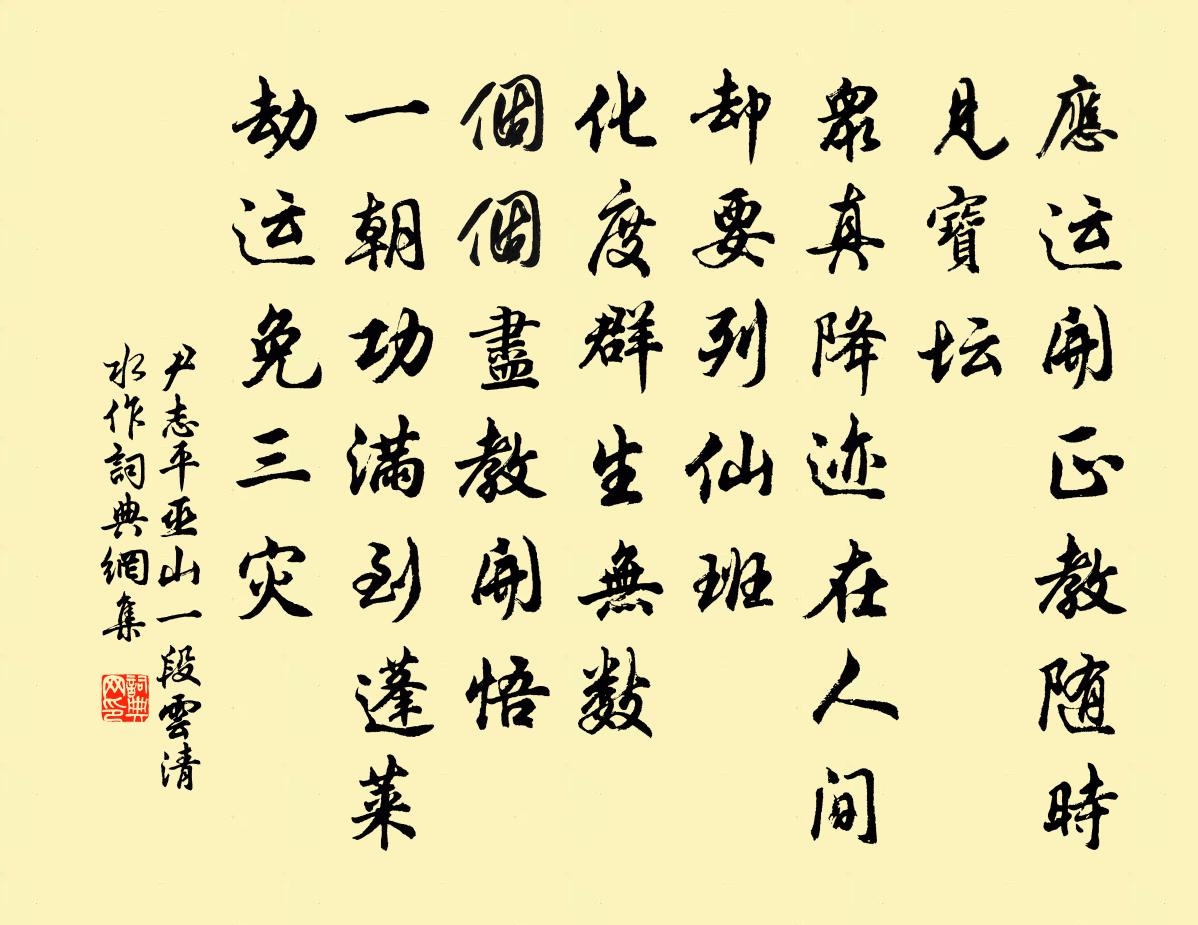 應运開正教随時
見寶坛
衆真降迹在人间
却要列仙班
化度群生無数
個個盡教開悟
一朝功满到蓬莱
劫运免三灾
尹志平巫山一段雲清
水作詞典網集
詞典
网印